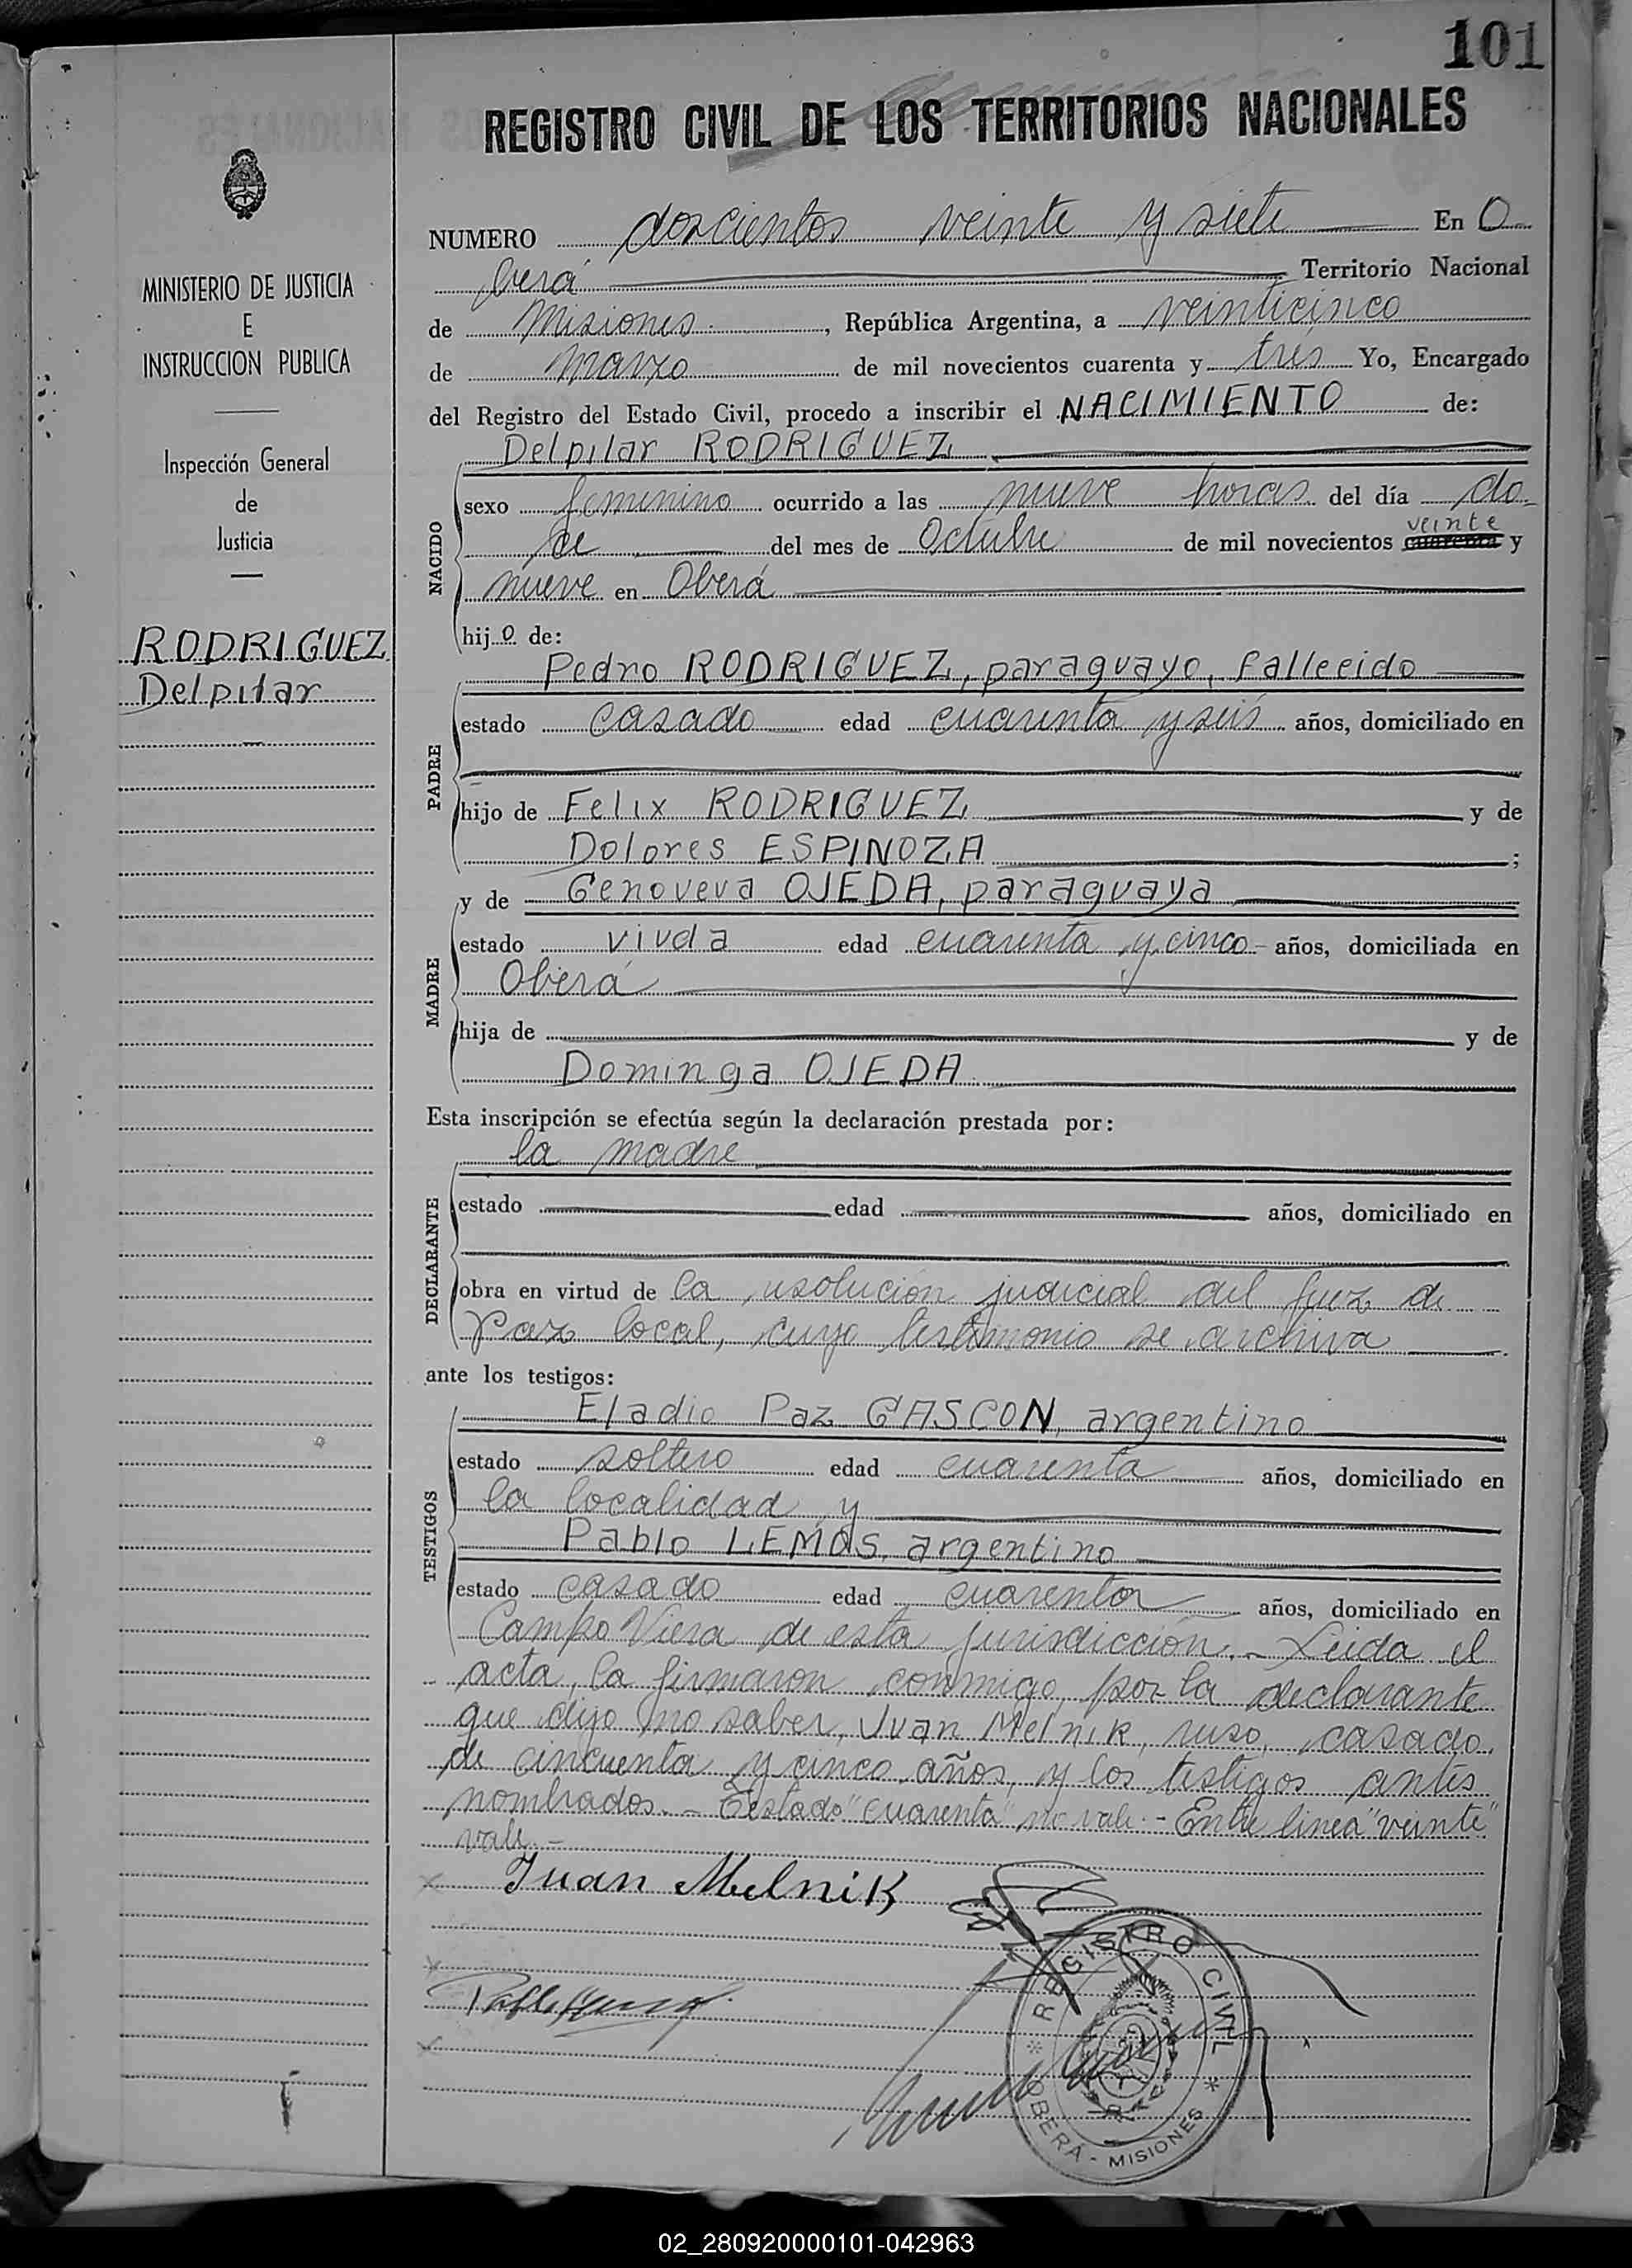 101
REGISTRO CIVIL DE LOS TERRITORIOS NACIONALES
MINISTERIO DE JUSTICIA
E
INSTRUCCION PUBLICA
Inspección General
de
Justicia
RODRIGUEZ
Delpilar
NUMERO doscientos veinte y siete En O
berá Territorio Nacional
de Misiones, República Argentina, a veinticinco
de Marzo de mil novecientos cuarenta y tres Yo, Encargado
del Registro del Estado Civil, procedo a inscribir el NACIMIENTO de:
Delpilar RODRIGUEZ
NACIDO
sexo femenino ocurrido a las nueve horas del día do
veinte
ce del mes de Octubre de mil novecientos cuarenta y
nueve en Oberá
hijo de:
Pedro RODRIGUEZ, paraguayo, fallecido
PADRE
estado casado edad cuarenta y seis años, domiciliado en
hijo de Felix RODRIGUEZ y de
Dolores ESPINOZA ;
y de Genoveva OJEDA, paraguaya
MADRE
estado viuda edad cuarenta y cinco años, domiciliada en
Oberá
hija de y de
Dominga OJEDA
Esta inscripción se efectúa según la declaración prestada por:
la madre
DECLARANTE
estado edad años, domiciliado en
obra en virtud de la resolución judicial del Juez de
Paz local, cuyo testimonio se archiva
ante los testigos:
Eladio Paz GASCON, argentino
TESTIGOS
estado soltero edad cuarenta años, domiciliado en
la localidad y
Pablo LEMOS, argentino
estado casado edad cuarenta años, domiciliado en
Campo Viera de esta jurisdicción.- Leida el
acta, la firmaron conmigo, por la declarante
que dijo no saber, Juan Melnik, ruso, casado,
de cincuenta y cinco años, y los testigos antes
nombrados.- Testado "cuarenta" no vale.- Entre linea "veinte"
vale.-
Juan Melnik
REGISTRO CIVIL
OBERÁ - MISIONES
02_280920000101-042963